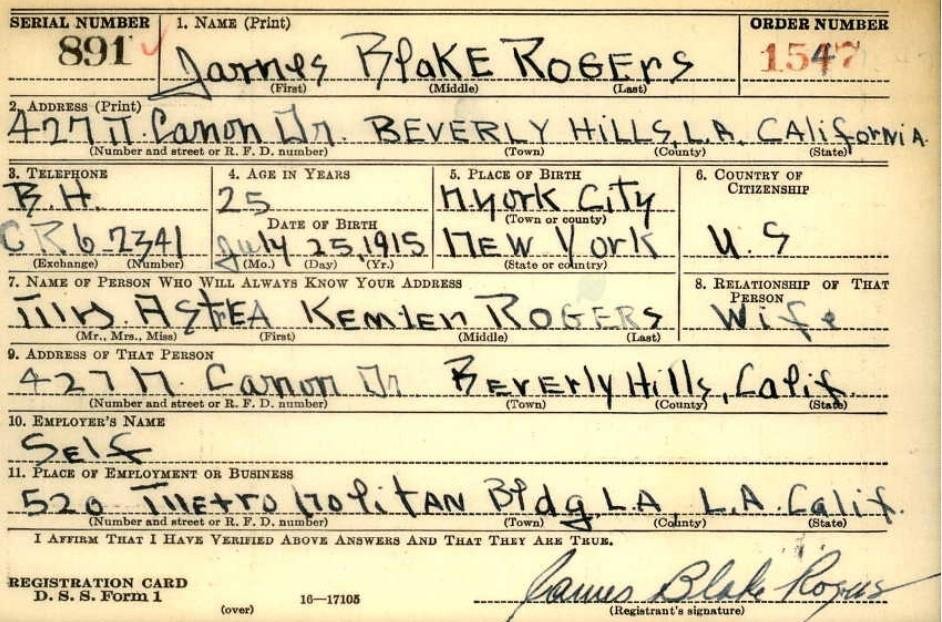 SERIAL NUMBER 1. NAME (Print) ORDER NUMBER
891 James BlaKE ROGErs 1547
(First) (Middle) (Last)
2. ADDRESS (Print)
427 N. Canon Dr. BEVERLY HillS, L.A. CALifornia
(Number and street or R. F. D. number) (Town) (County) (State)
3. TELEPHONE 4. AGE IN YEARS 5. PLACE OF BIRTH 6. COUNTRY OF CITIZENSHIP
B.H. 25 N.York City
DATE OF BIRTH (Town or county)
CR6-2341 July 25, 1915 NEW York U.S
(Exchange) (Number) (Mo.) (Day) (Yr.) (State or country)
7. NAME OF PERSON WHO WILL ALWAYS KNOW YOUR ADDRESS 8. RELATIONSHIP OF THAT PERSON
Mrs. AStrEA KEmlen ROGERS Wife
(Mr., Mrs., Miss) (First) (Middle) (Last)
9. ADDRESS OF THAT PERSON
427 N. Canon Dr. BEvErly Hills, Calif.
(Number and street or R. F. D. number) (Town) (County) (State)
10. EMPLOYER'S NAME
SElf
11. PLACE OF EMPLOYMENT OR BUSINESS
520 MEtropolitAN Bldg, L.A, L.A. Calif.
(Number and street or R. F. D. number) (Town) (County) (State)
I AFFIRM THAT I HAVE VERIFIED ABOVE ANSWERS AND THAT THEY ARE TRUE.
REGISTRATION CARD
D. S. S. Form 1 16—17105 James Blake Rogers
(over) (Registrant's signature)